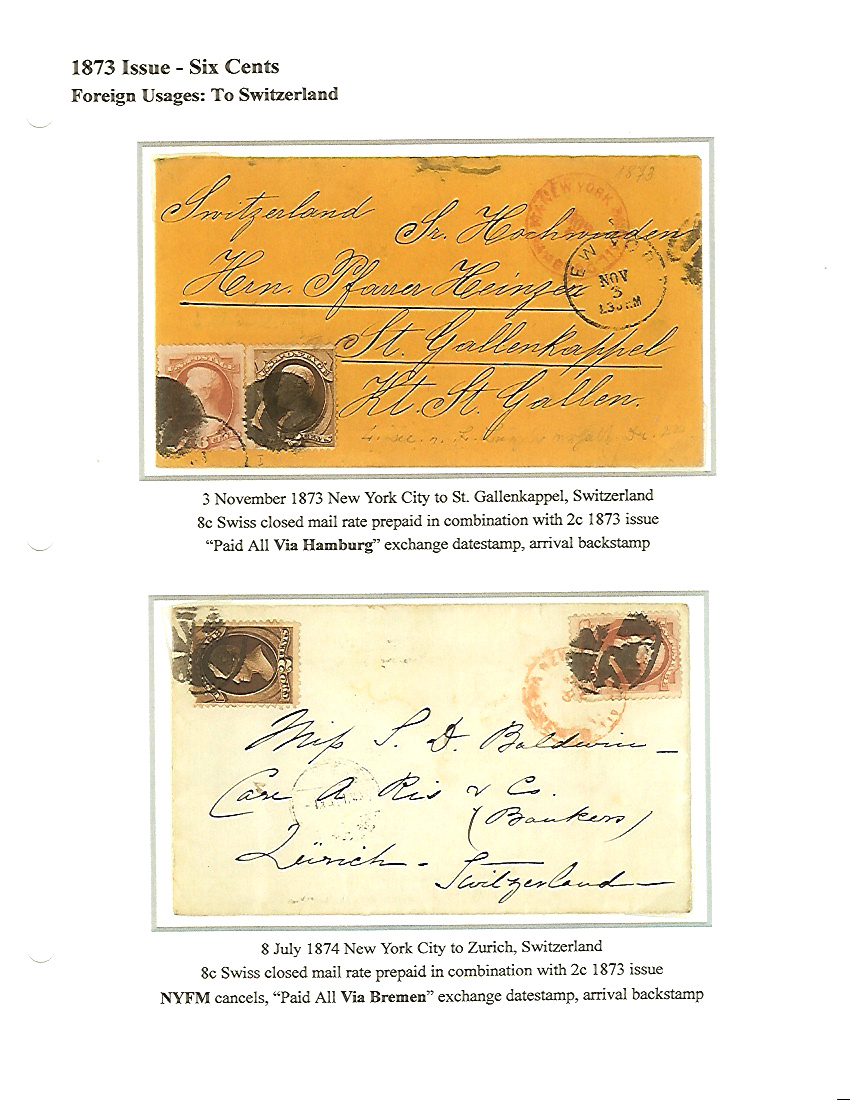 1873 Issue - Six Cents
Foreign Usages: To Switzerland
1873
NEW YORK
Switzerland
Sr. Hochwürden
NEW YORK
NOV
3
Hrn. Pfarrer Heinzer
St. Gallenkappel
Kt. St. Gallen.
3 November 1873 New York City to St. Gallenkappel, Switzerland
8c Swiss closed mail rate prepaid in combination with 2c 1873 issue
“Paid All Via Hamburg” exchange datestamp, arrival backstamp
Miss S. D. Baldwin
Care A Ris & Co.
(Bankers)
Zürich - Switzerland
8 July 1874 New York City to Zurich, Switzerland
8c Swiss closed mail rate prepaid in combination with 2c 1873 issue
NYFM cancels, “Paid All Via Bremen” exchange datestamp, arrival backstamp